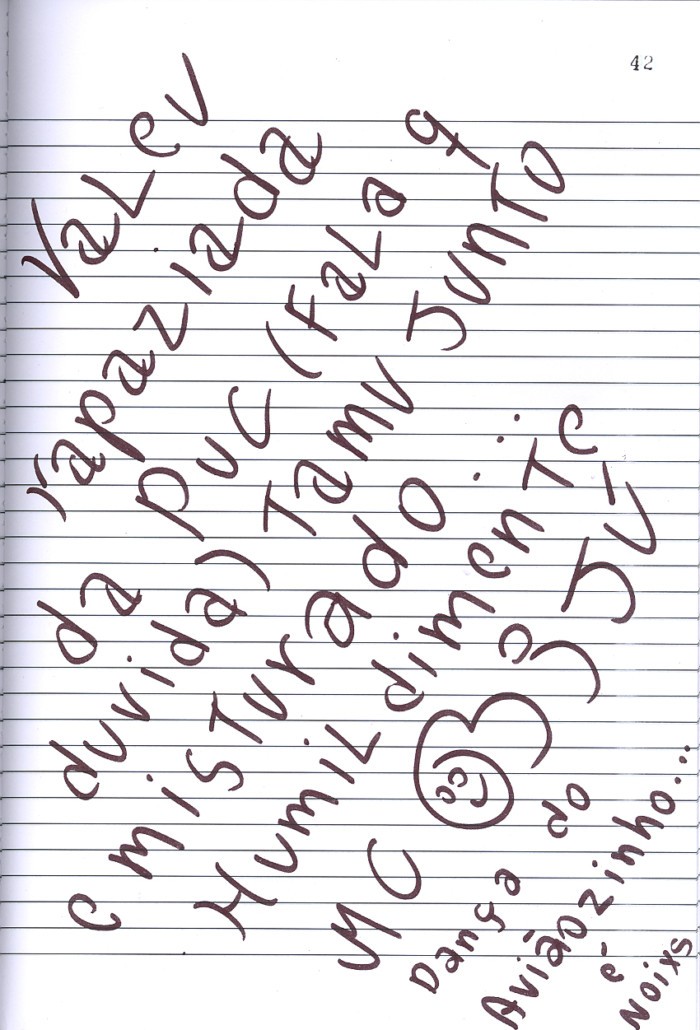 42
VaLeu
rapaziada
da puc (FaLa q
duvida) Tamu junto
e misturado...
Humildimente
MC
Dança do
Aviãozinho...
é
Noixs